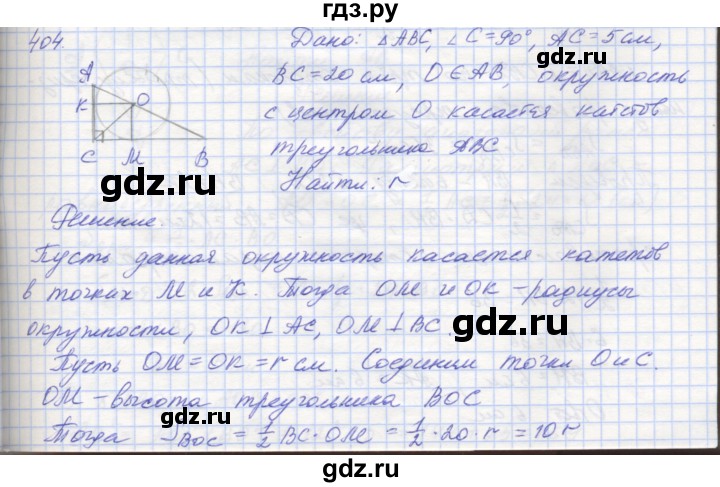 гдз.ру
404.
Дано: △ABC, ∠C=90°, AC=5 см,
BC=20 см, O∈AB, окружность
с центром O касается катетов
треугольника ABC
Найти: r
A
K
O
C
M
B
gdz.ru
gdz.ru
gdz.ru
Решение.
Пусть данная окружность касается катетов
в точках M и K. Тогда OM и OK – радиусы
окружности, OK ⊥ AC, OM ⊥ BC.
Пусть OM=OK=r см. Соединим точки O и C.
OM – высота треугольника BOC
Тогда S_BOC = 1/2 BC·OM = 1/2 ·20·r = 10r
gdz.ru
gdz.ru
gdz.ru
gdz.ru